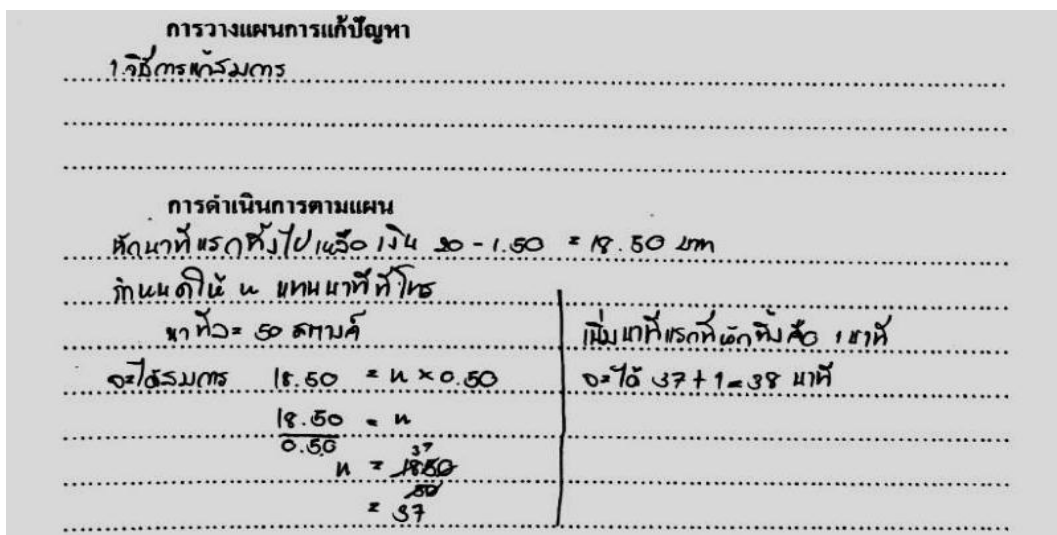 การวางแผนการแก้ปัญหา
1.วิธีการแก้สมการ
การดำเนินการตามแผน
หักนาทีแรกทิ้งไปเหลือเงิน 20 - 1.50 = 18.50 บาท
กำหนดให้ น แทนนาทีที่โทร
นาทีละ 50 สตางค์
จะได้สมการ 18.50 = น × 0.50
18.50 = น
0.50
น = 1850 37
50
= 37
เพิ่มนาทีแรกที่หักทิ้งคือ 1 นาที
จะได้ 37 + 1 = 38 นาที